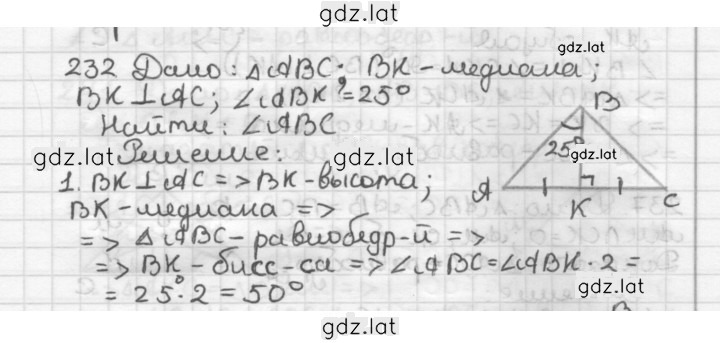 gdz.lat
gdz.lat
232 Дано: △ABC; BK - медиана;
BK ⊥ AC; ∠ABK = 25°
Найти: ∠ABC
gdz.lat
Решение:
gdz.lat
1. BK ⊥ AC => BK - высота;
BK - медиана =>
=> △ABC - равнобедр-й =>
=> BK - бисс-са => ∠ABC = ∠ABK · 2 =
= 25° · 2 = 50°
B
25°
gdz.lat
A
K
C
gdz.lat
gdz.lat